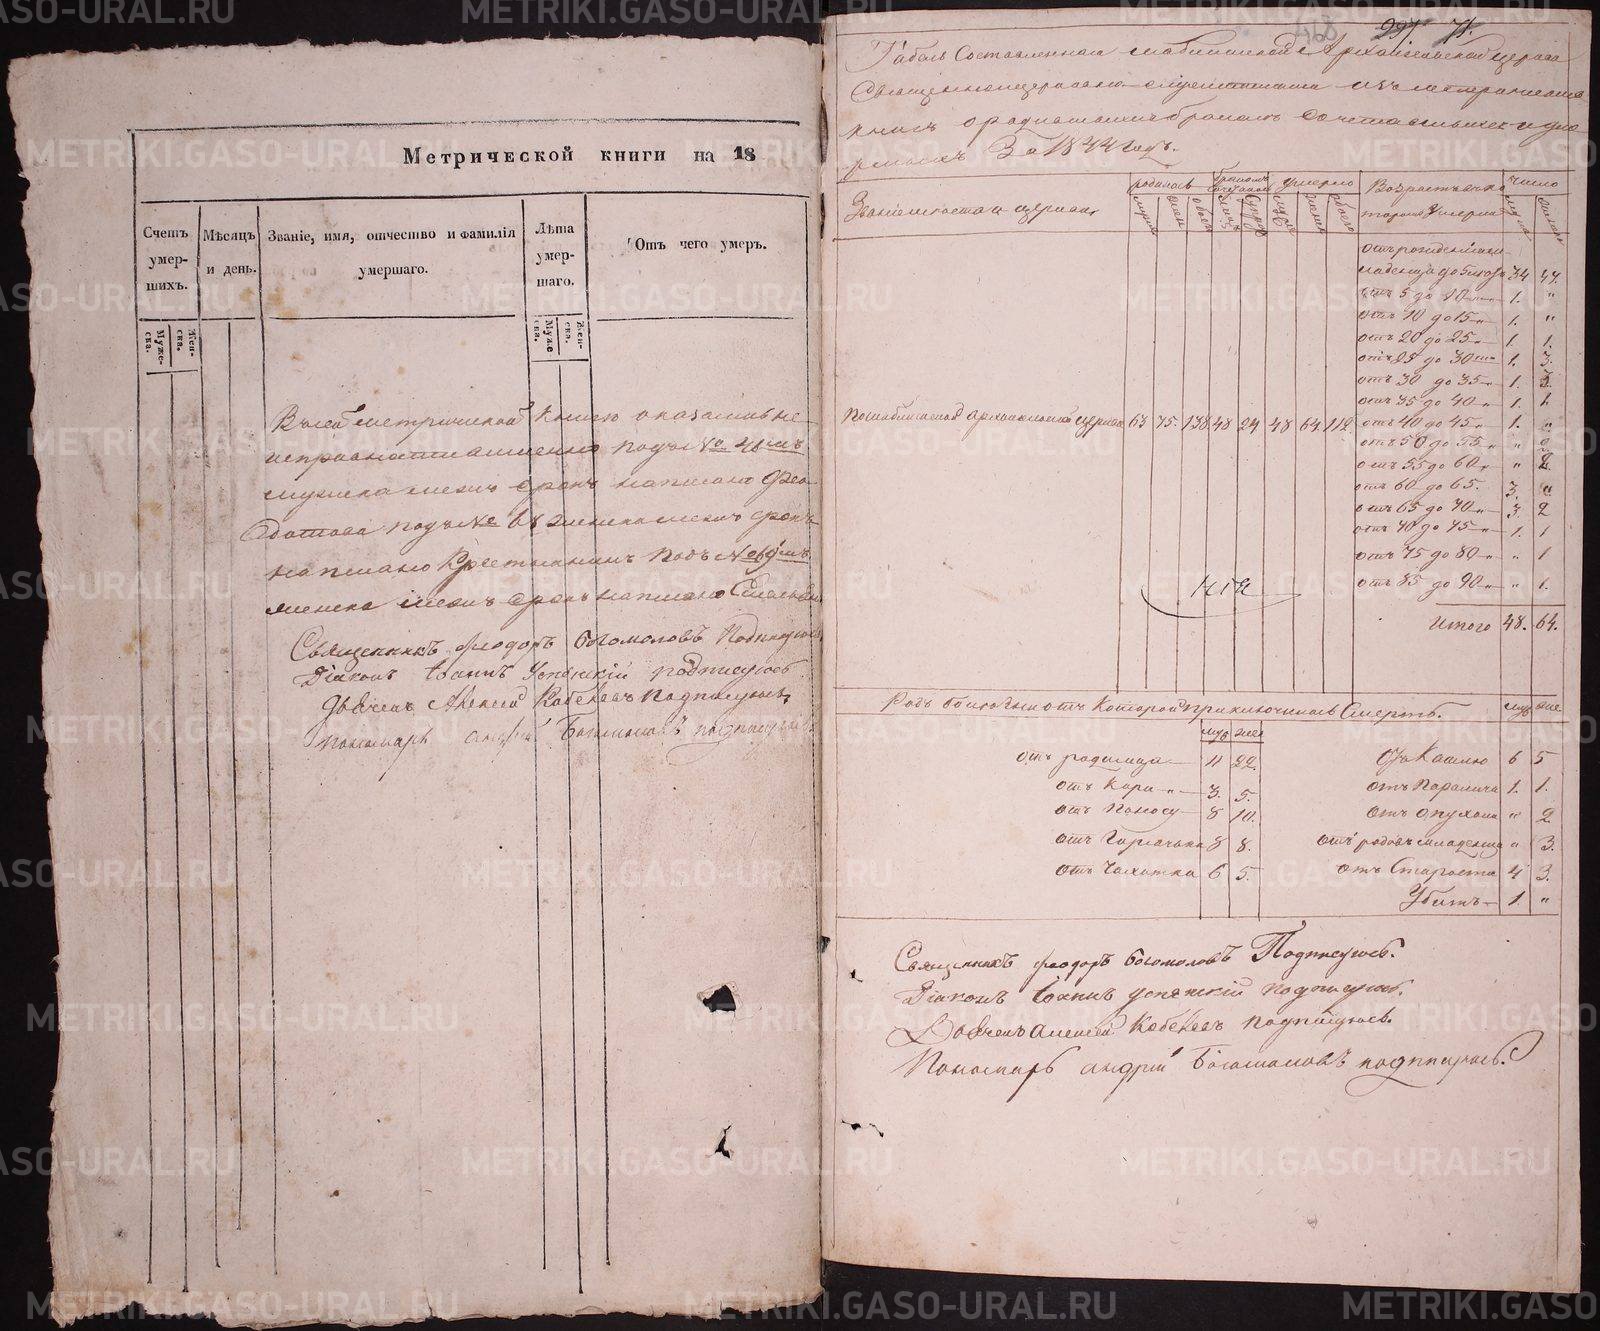 Метрической книги на 18
Счетъ умер-шихъ.
Мѣсяцъ и день.
Званіе, имя, отчество и фамилія умершаго.
Лѣта умер-шаго.
Отъ чего умеръ.
Муже-ска.
Жен-ска.
Муже ска.
Жен-ска.
В сей метрической книге оказались не
исправно подъ №
мужска написано Фео
дотова подъ №
написано Крестьянинъ подъ №
женска написано
Священникъ Феодоръ Богомоловъ Подписуюсь
Діаконъ Іоаннъ Успенскій подписуюсь
Дьячекъ Алексей подписуюсь
пономарь Андрей Богомоловъ подписуюсь
297 71.
Табель Составленная Архангельской церкви
Священноцерковно-служителями изъ метрическихъ
книгъ о родившихся бракомъ сочетавшихся и уме
ршихъ За 1844 годъ.
родилось
умерло
Возрастъ
Число
Званіе мѣста и церкви
отъ рожденія
младенца до 5 34 47.
отъ 5 до 10 1. "
отъ 10 до 15 1. "
отъ 20 до 25 1. 1.
отъ 25 до 30 1. 3.
отъ 30 до 35 1. 3.
отъ 35 до 40 1. 1.
архангельской церкви 63 75. 138 48 24 48 64. 112.
отъ 40 до 45 1. "
отъ 50 до 55 "
отъ 55 до 60 "
отъ 60 до 65. 3. "
отъ 65 до 70 3. 2
отъ 70 до 75 1. 1
отъ 75 до 80 " 1
отъ 85 до 90 " 1.
Итого 48. 64.
Родъ болезни отъ Которой приключилась Смерть. муж жен
муж жен
отъ родимца 11 22. отъ Кашлю 6 5
отъ Кори 3. 5. отъ Паралича 1. 1.
отъ Поносу 8 10. отъ опухоли " 2
отъ Горячки 8 8. отъ родовъ младенца " 3.
отъ Чахотки 6 5. отъ Старости 4 3.
Убитъ 1 "
Священникъ Феодоръ Богомоловъ Подписуюсь.
Діаконъ Іоаннъ Успенскій подписуюсь.
Дьячекъ Алексей подписуюсь.
Пономарь Андрей Богомоловъ подписуюсь.
METRIKI.GASO-URAL.RU